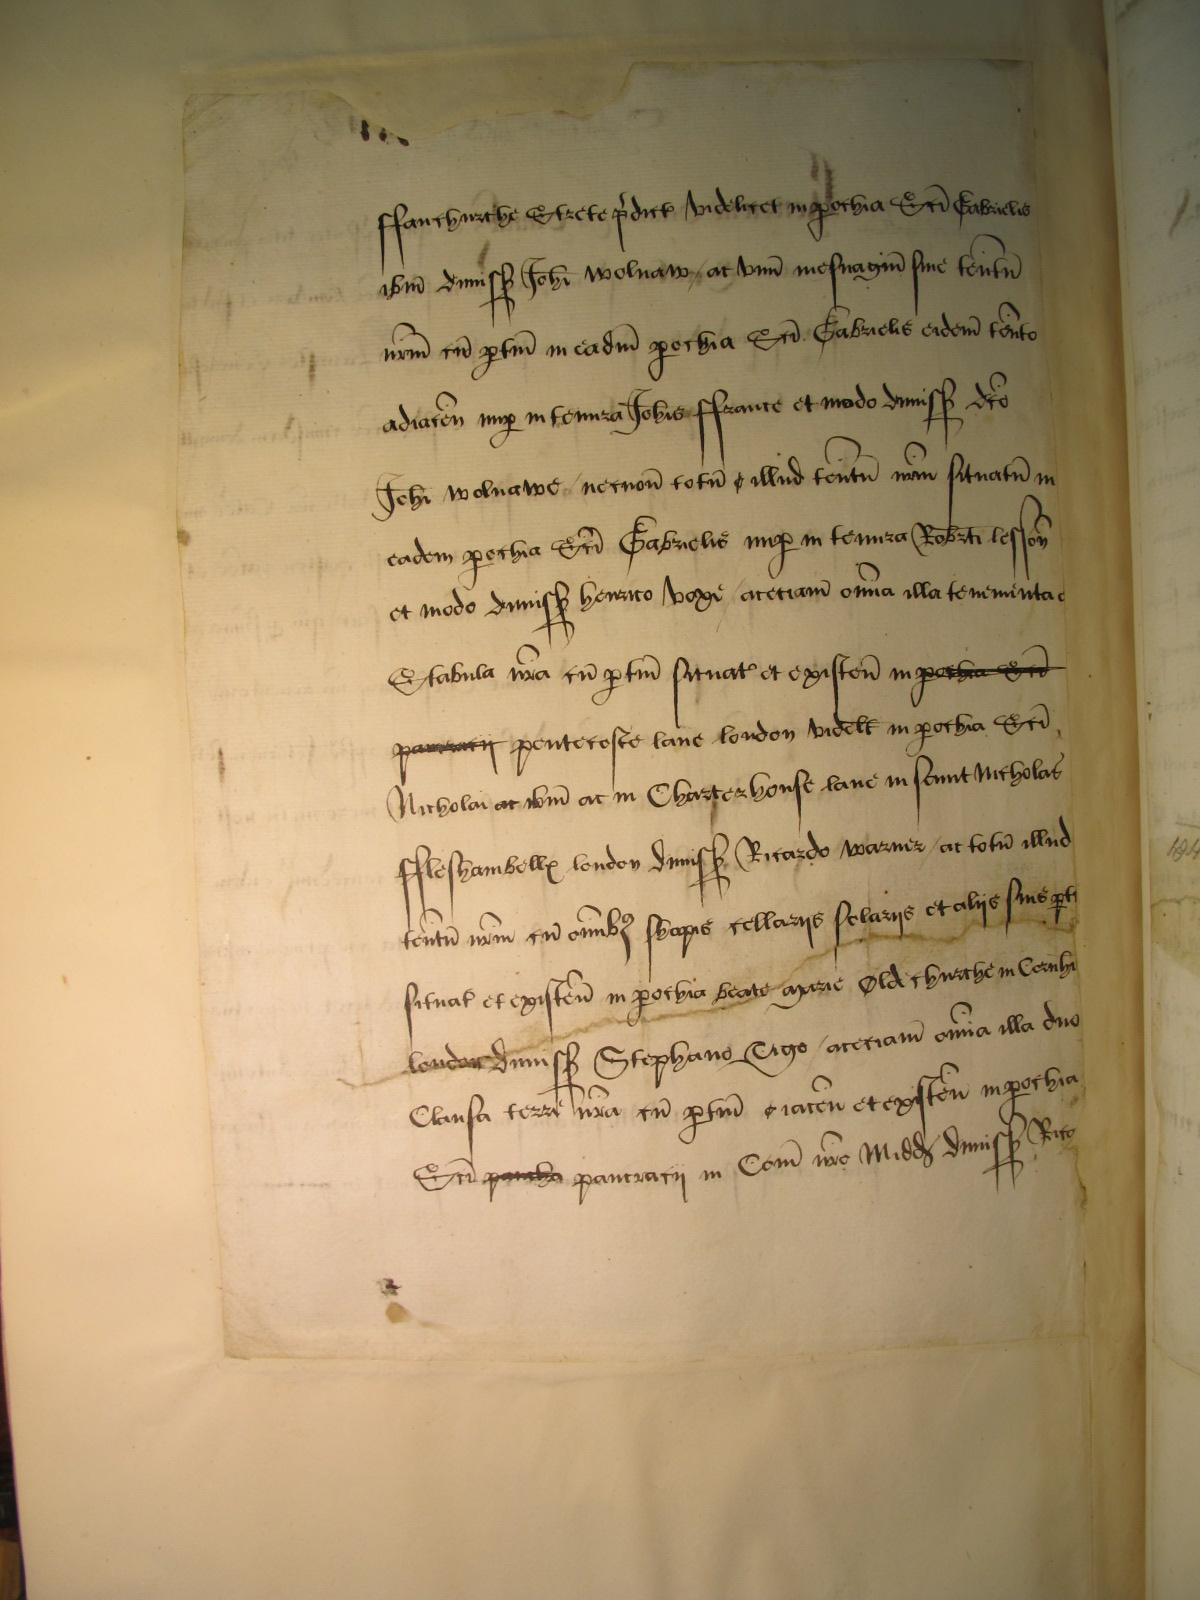 ffanchurche Strete p'dict' videlicet in pochia Sci Gabrielis
ibm dimiss Johi Wolnaw / ac vnu mesuagiu siue tentu
nrm cu ptin in eadm pochia Sci Gabrielis eidem tento
adiacen nup in tenura Johis ffrance et modo dimiss dco
Johi Wolnawe / necnon totu & illud tentu nrm situatu in
eadem pochia Sci Gabrielis nup in tenura Robrti lesson
et modo dimiss henrico voge / aceciam omia illa tenementa e
Stabula nra cu ptin situat' et existen in pochia Sci
pancracij pentecoste lane london videlt in pochia Sci
Nicholai ac ibm ac in Charterhouse lane in seint Nicholas
ffleshambell london dimiss Ricardo warner / ac totu illud
tentu nrm cu omib3 shopis cellariis solariis et aliis suis pti
situat' et existen in pochia beate marie Oldechurche in Cornhi
london dimiss Stephano / aceciam omia illa duo
Clausa terre nra cu ptin & iacen et existen in pochia
Sci pancracij in Com nro Midd dimiss Rico